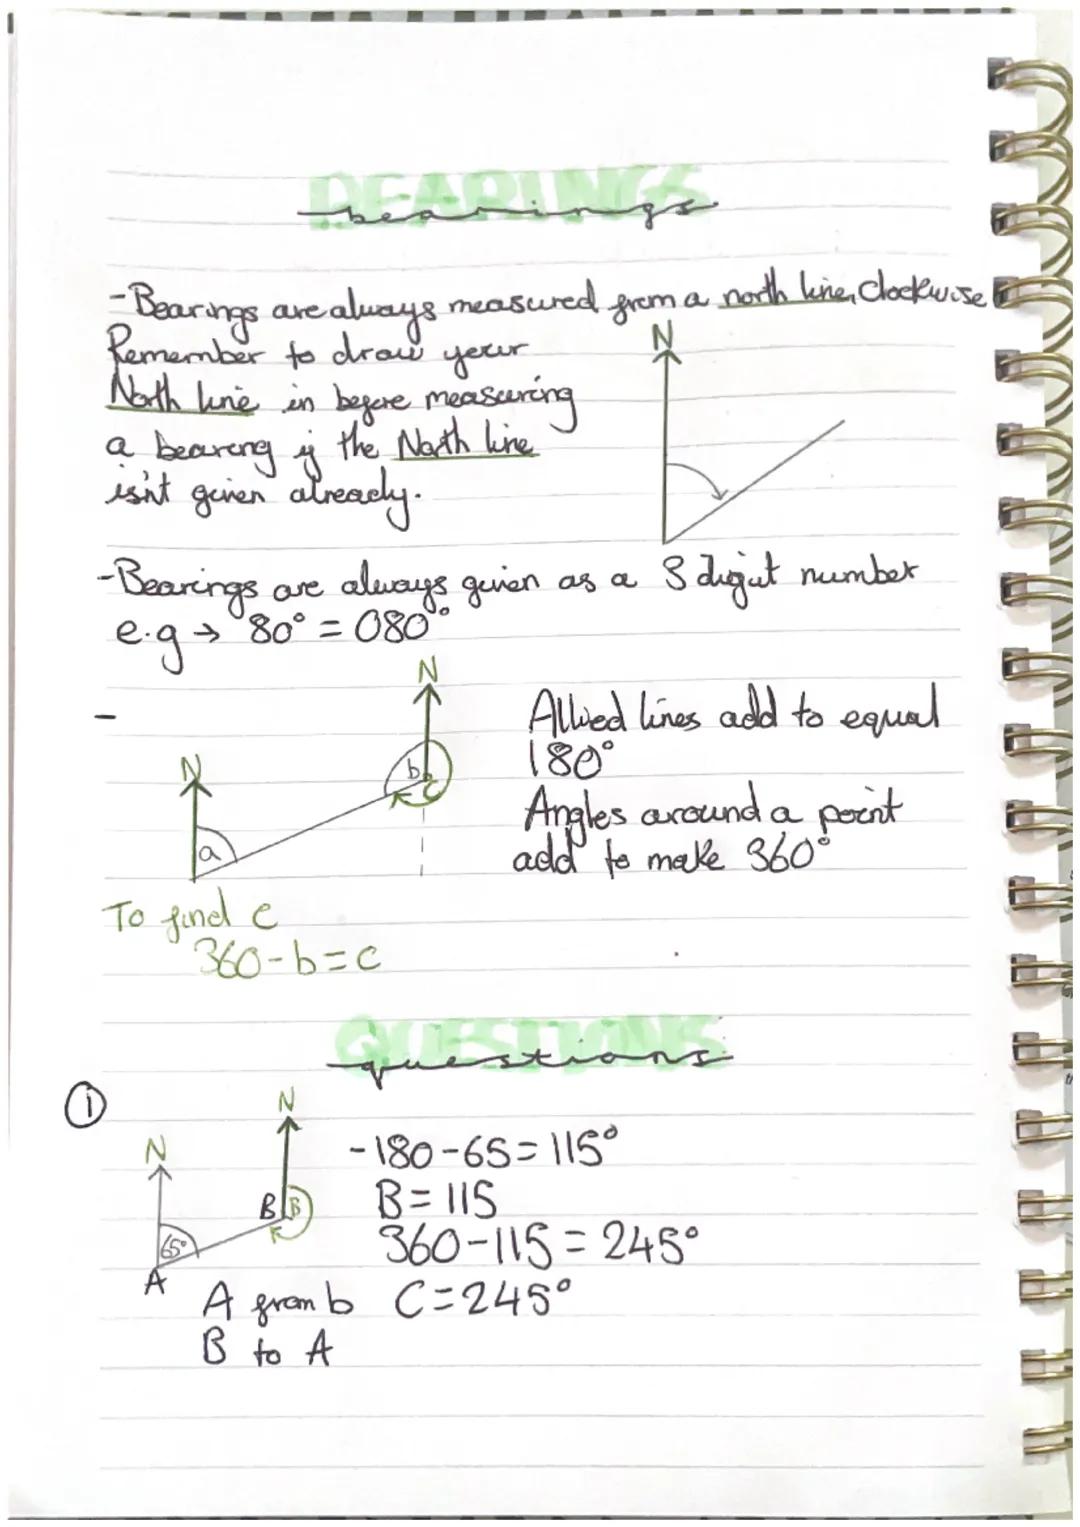 BEARINGS
bearings
-Bearings are always measured from a north line, Clockwise
Remember to draw your
North line in before measuring
a bearing if the North line
isn't given already.
N
-Bearings are always given as a 3 digit number
e.g → 80° = 080°
-
N
N
b
c
a
Allied lines add to equal
180°
Angles around a point
add to make 360°
To find c
360-b=c
QUESTIONS
questions
1
N
N
B
B
65°
A
-180-65=115°
B=115
360-115=245°
A from b C=245°
B to A